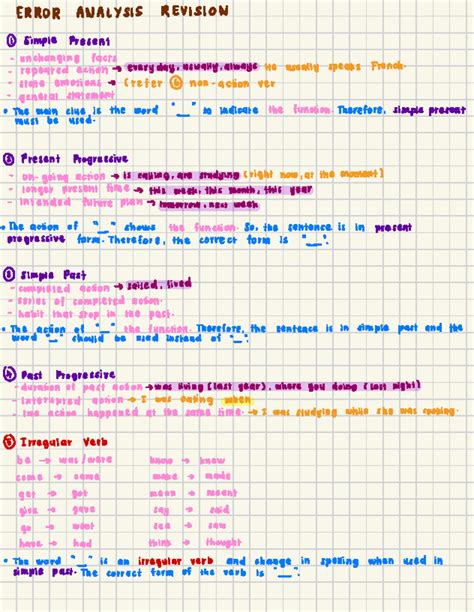 ERROR ANALYSIS REVISION
① Simple Present
- unchanging facts
- repeated action → everyday, usually, always He usually speaks French.
- state emotions → (refer ⑥ non-action ver
- general statement
• The main clue is the word "__" to indicate the function. Therefore, simple present
must be used.
Present Progressive
- on-going action → is calling, are studying (right now, at the moment)
- longer present time → this week, this month, this year
- intended future plan → tomorrow, next week
• The action of "__" shows the function. So, the sentence is in present
progressive form. Therefore, the correct form is "__".
Simple Past
- completed action → sailed, lived
- series of completed action.
- habit that stop in the past.
• The action of "__" the function. Therefore, the sentence is in simple past and the
word "__" should be used instead of "__".
④ Past Progressive
- duration of past action → was living (last year), where you doing (last night)
- interrupted action → I was eating when
- two action happened at the same time. → I was studying while she was cooking.
⑤ Irregular Verb
be → was/were know → knew
come → came make → made
get → got mean → meant
give → gave say → said
go → went see → saw
have → had think → thought
• The word "__" is an irregular verb and change in spelling when used in
simple past. The correct form of the verb is "__".